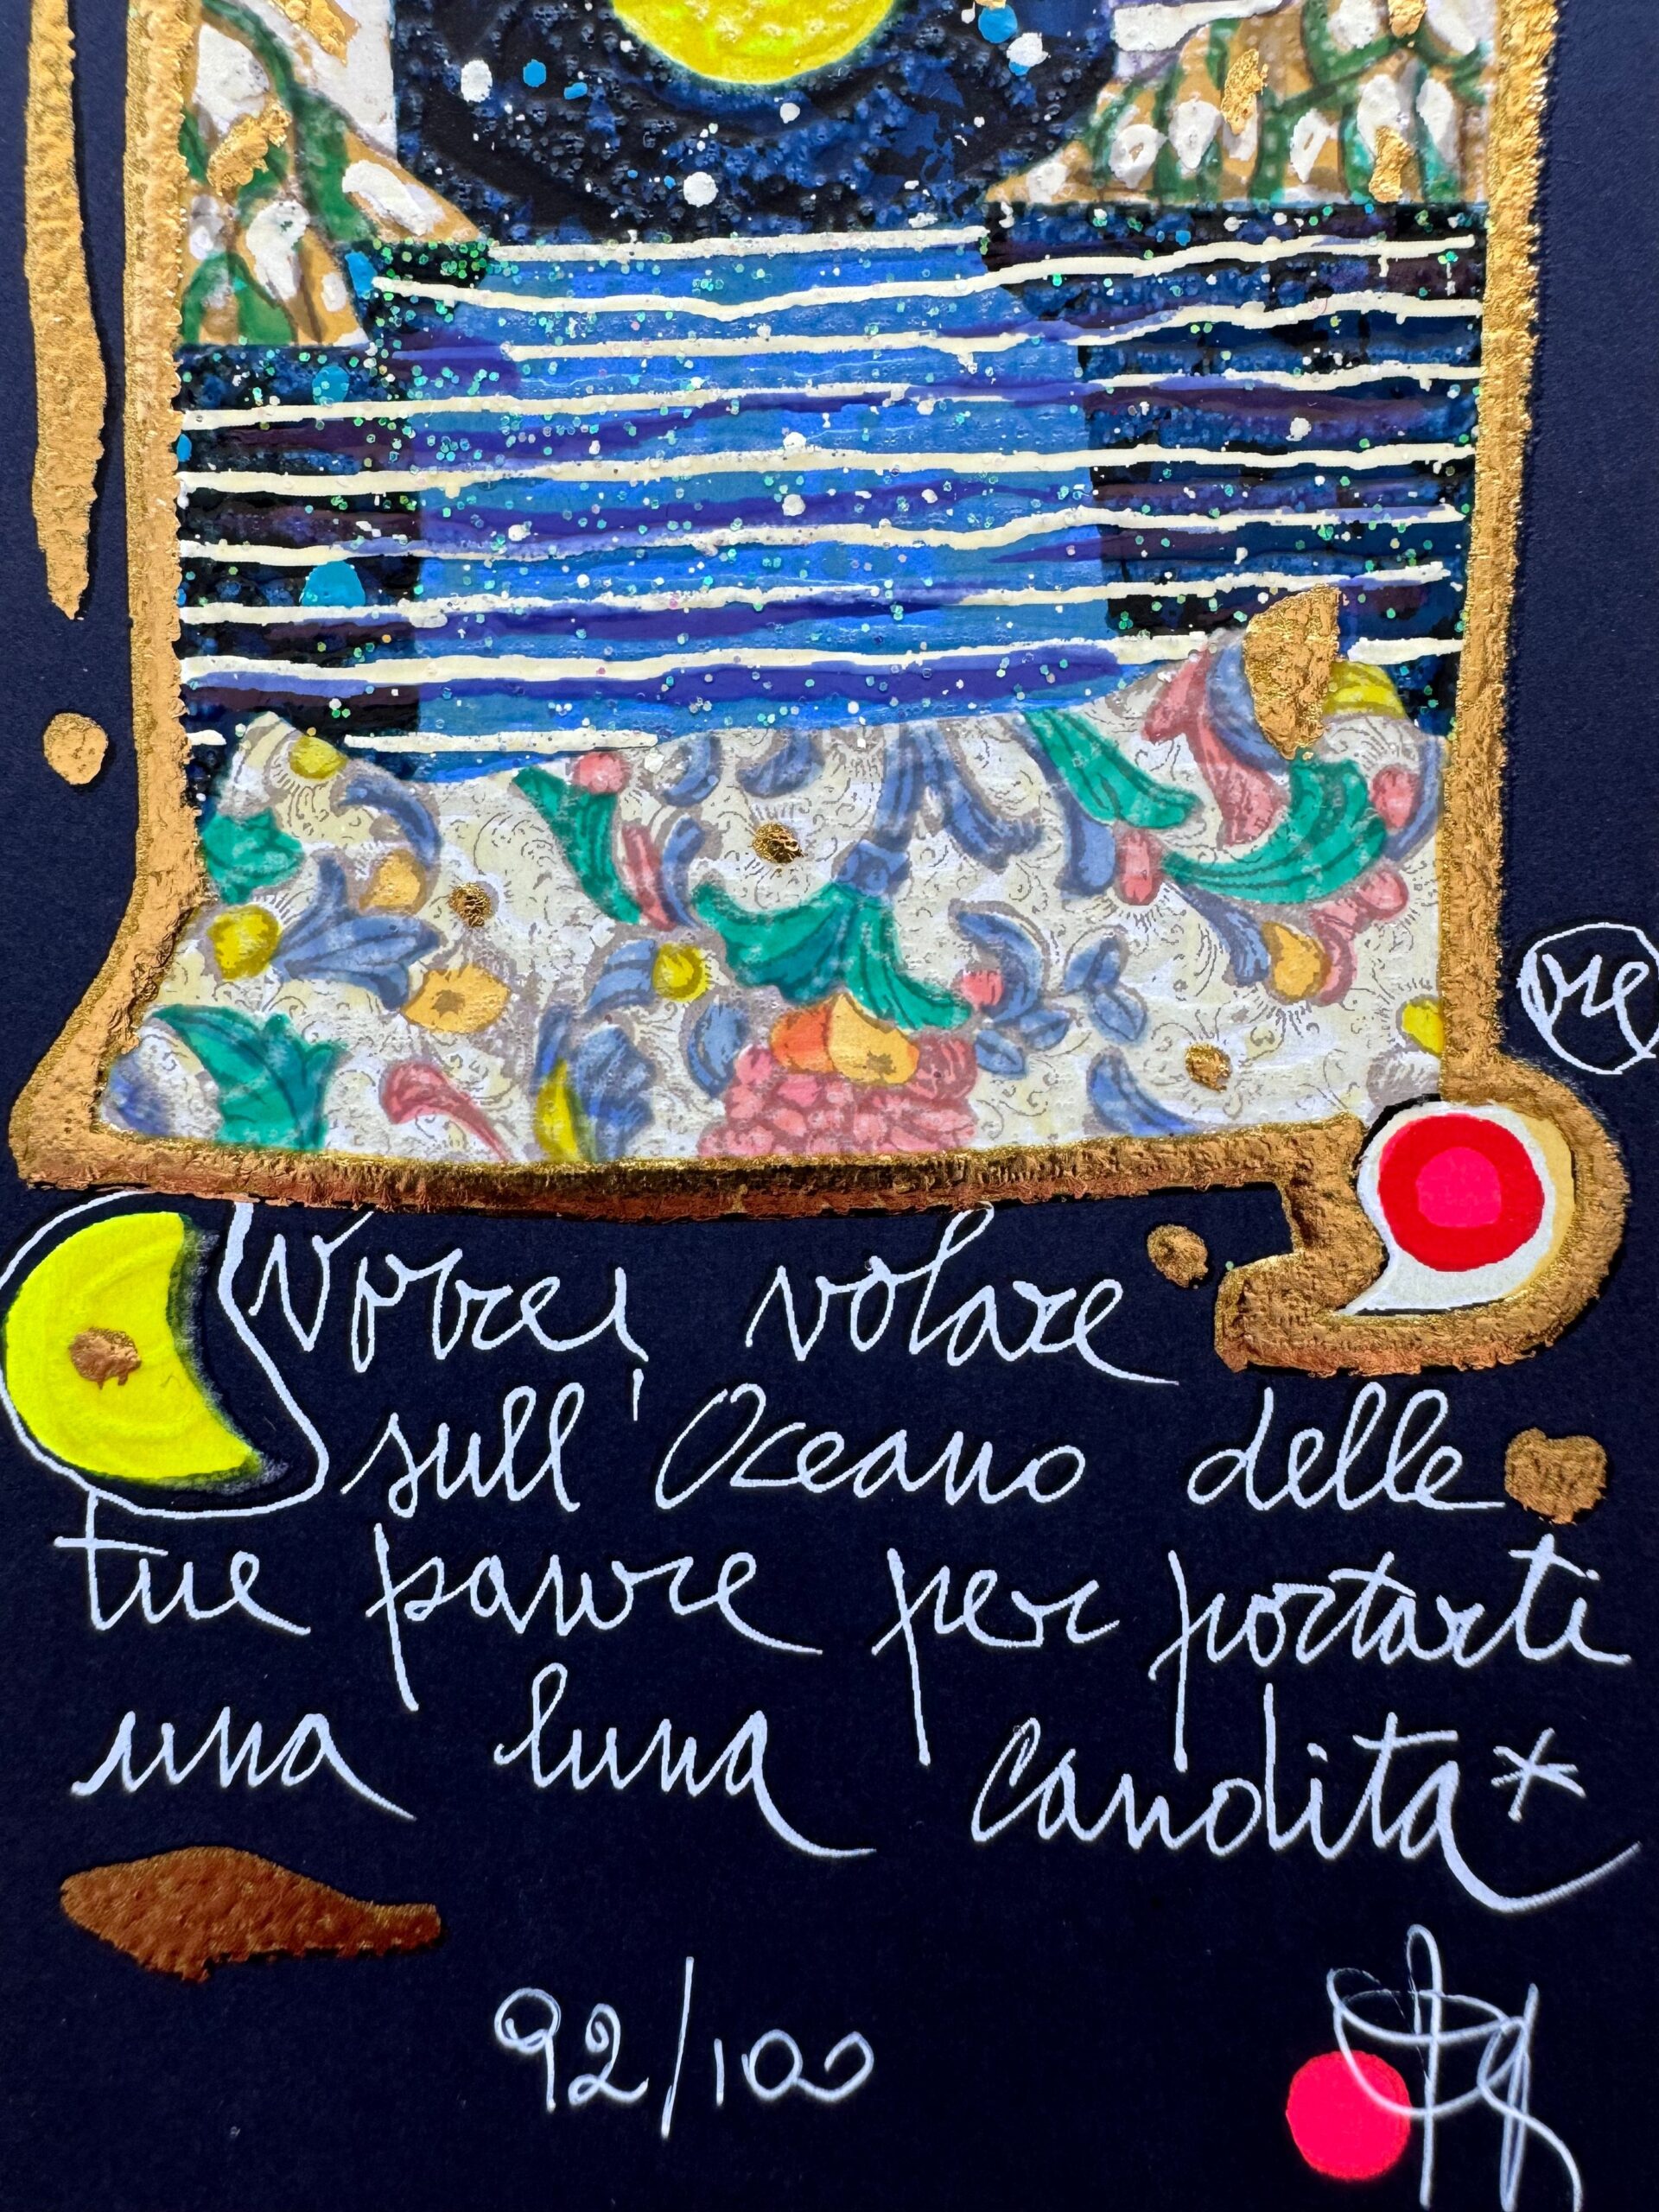 Vorrei volare
sull'Oceano delle
tue paure per portarti
una luna candita*
92/100